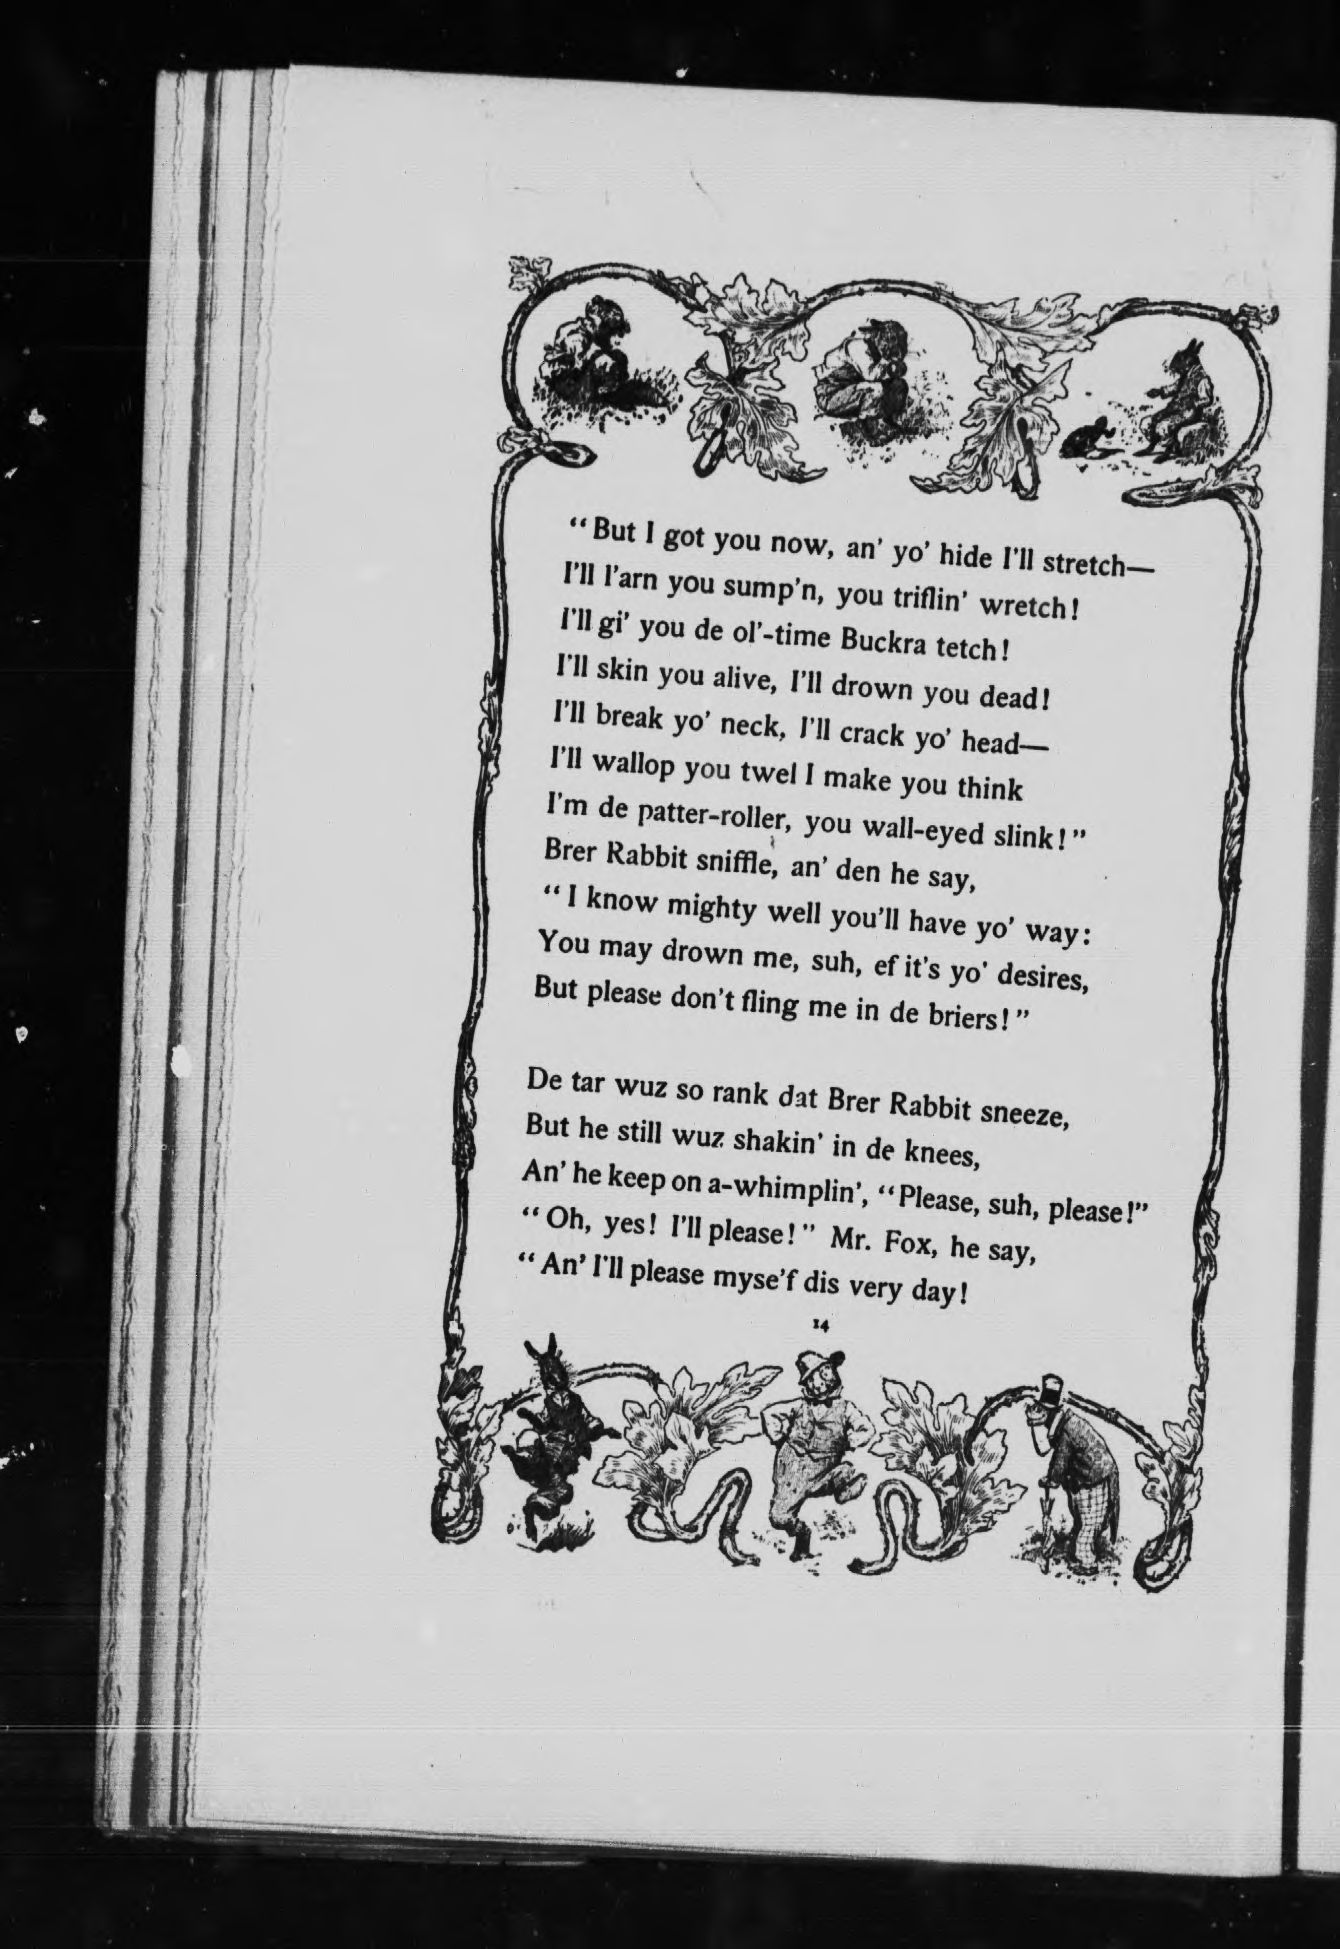 “But I got you now, an’ yo’ hide I’ll stretch—
I’ll l’arn you sump’n, you triflin’ wretch!
I’ll gi’ you de ol’-time Buckra tetch!
I’ll skin you alive, I’ll drown you dead!
I’ll break yo’ neck, I’ll crack yo’ head—
I’ll wallop you twel I make you think
I’m de patter-roller, you wall-eyed slink!”
Brer Rabbit sniffle, an’ den he say,
“I know mighty well you’ll have yo’ way:
You may drown me, suh, ef it’s yo’ desires,
But please don’t fling me in de briers!”
De tar wuz so rank dat Brer Rabbit sneeze,
But he still wuz shakin’ in de knees,
An’ he keep on a-whimplin’, “Please, suh, please!”
“Oh, yes! I’ll please!” Mr. Fox, he say,
“An’ I’ll please myse’f dis very day!
14